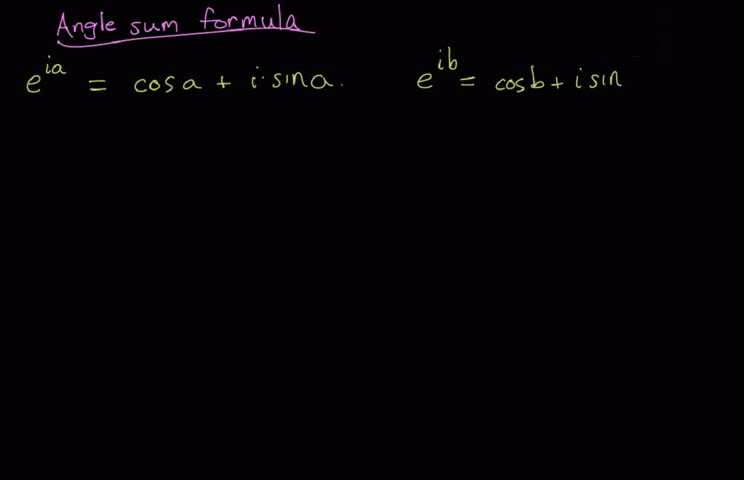 Angle sum formula
e^{ia} = cos a + i·sin a.    e^{ib} = cos b + i sin